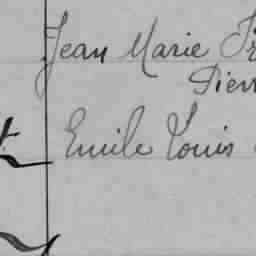 Jean Marie Fr
Pierr
Emile Louis